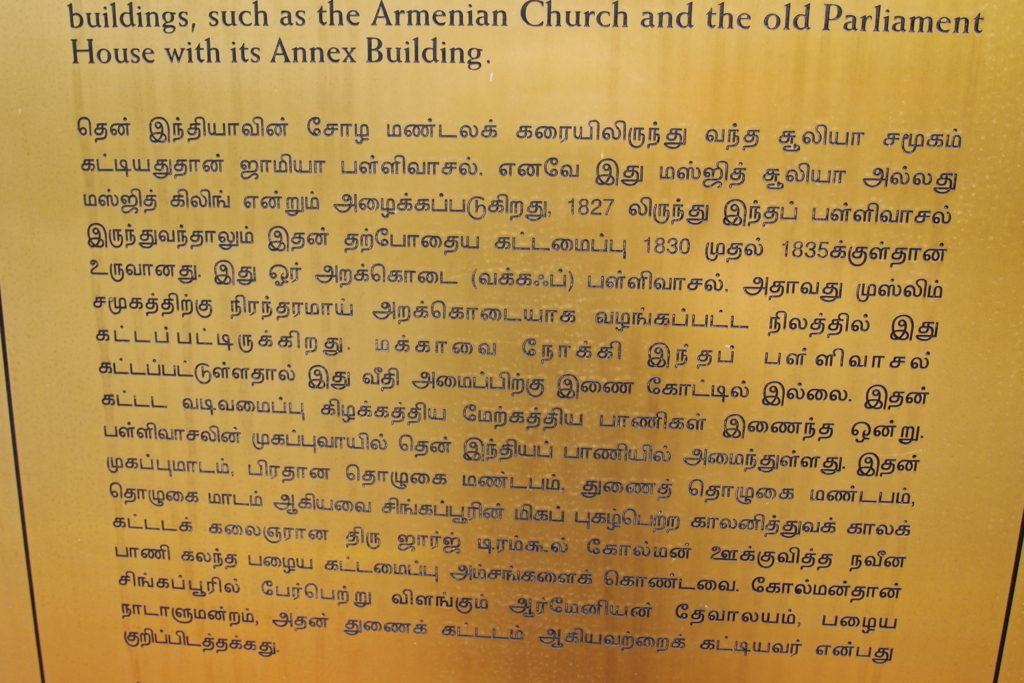 buildings, such as the Armenian Church and the old Parliament
House with its Annex Building.
தென் இந்தியாவின் சோழ மண்டலக் கரையிலிருந்து வந்த சூலியா சமூகம்
கட்டியதுதான் ஜாமியா பள்ளிவாசல். எனவே இது மஸ்ஜித் சூலியா அல்லது
மஸ்ஜித் கிலிங் என்றும் அழைக்கப்படுகிறது, 1827 லிருந்து இந்தப் பள்ளிவாசல்
இருந்துவந்தாலும் இதன் தற்போதைய கட்டமைப்பு 1830 முதல் 1835க்குள்தான்
உருவானது. இது ஓர் அறக்கொடை (வக்கஃப்) பள்ளிவாசல். அதாவது முஸ்லிம்
சமூகத்திற்கு நிரந்தரமாய் அறக்கொடையாக வழங்கப்பட்ட நிலத்தில் இது
கட்டப்பட்டிருக்கிறது. மக்காவை நோக்கி இந்தப் பள்ளிவாசல்
கட்டப்பட்டுள்ளதால் இது வீதி அமைப்பிற்கு இணை கோட்டில் இல்லை. இதன்
கட்டட வடிவமைப்பு கிழக்கத்திய மேற்கத்திய பாணிகள் இணைந்த ஒன்று.
பள்ளிவாசலின் முகப்புவாயில் தென் இந்தியப் பாணியில் அமைந்துள்ளது. இதன்
முகப்புமாடம், பிரதான தொழுகை மண்டபம், துணைத் தொழுகை மண்டபம்,
தொழுகை மாடம் ஆகியவை சிங்கப்பூரின் மிகப் புகழ்பெற்ற காலனித்துவக் காலக்
கட்டடக் கலைஞரான திரு ஜார்ஜ் டிரம்கூல் கோல்மன் ஊக்குவித்த நவீன
பாணி கலந்த பழைய கட்டமைப்பு அம்சங்களைக் கொண்டவை. கோல்மன்தான்
சிங்கப்பூரில் பேர்பெற்று விளங்கும் ஆர்மேனியன் தேவாலயம், பழைய
நாடாளுமன்றம், அதன் துணைக் கட்டடம் ஆகியவற்றைக் கட்டியவர் என்பது
குறிப்பிடத்தக்கது.